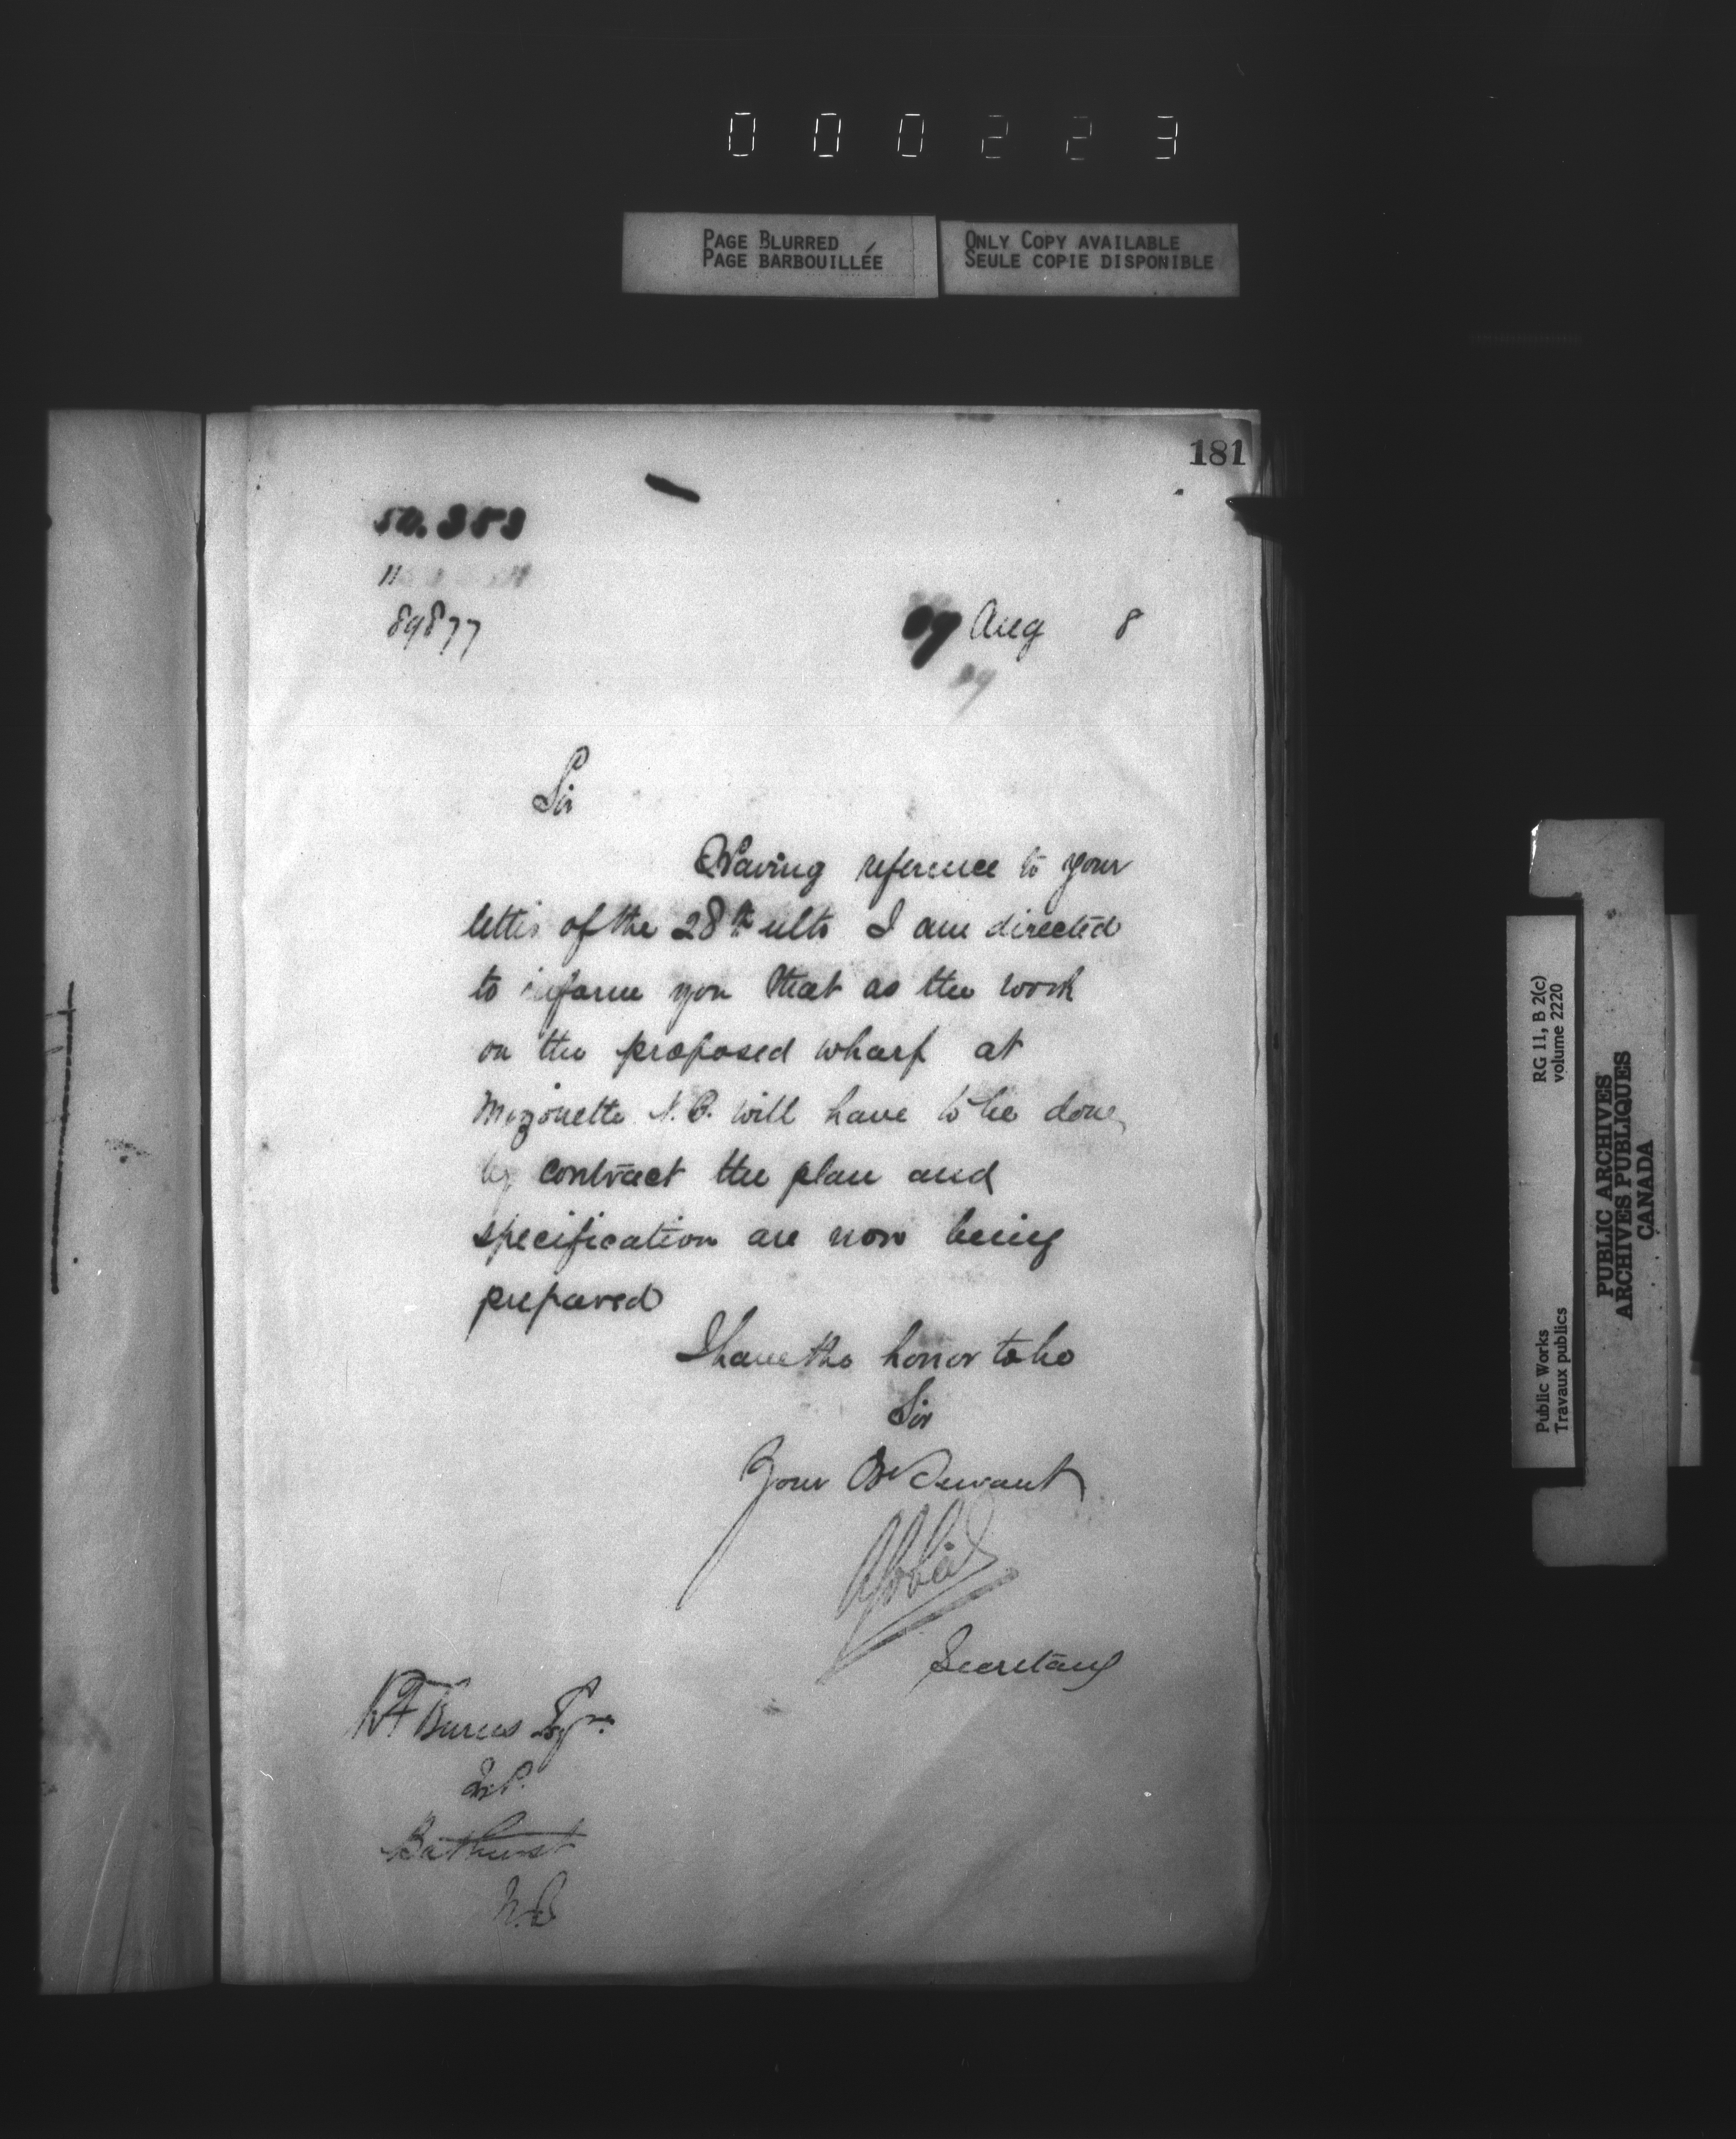 000223
PAGE BLURRED
PAGE BARBOUILLÉE
ONLY COPY AVAILABLE
SEULE COPIE DISPONIBLE
181
50.353
89877
Aug 8
Sir
Having reference to your
letter of the 28th ulto I am directed
to inform you that as the work
on the proposed wharf at
Mizonette N.B. will have to be done
by contract the plan and
specification are now being
prepared
I have the honor to be
Sir
Your Ob Servant
Secretary
KF Burns Esqre.
M.P.
Bathurst
N.B
RG 11, B 2(c)
volume 2220
Public Works
Travaux publics
PUBLIC ARCHIVES
ARCHIVES PUBLIQUES
CANADA